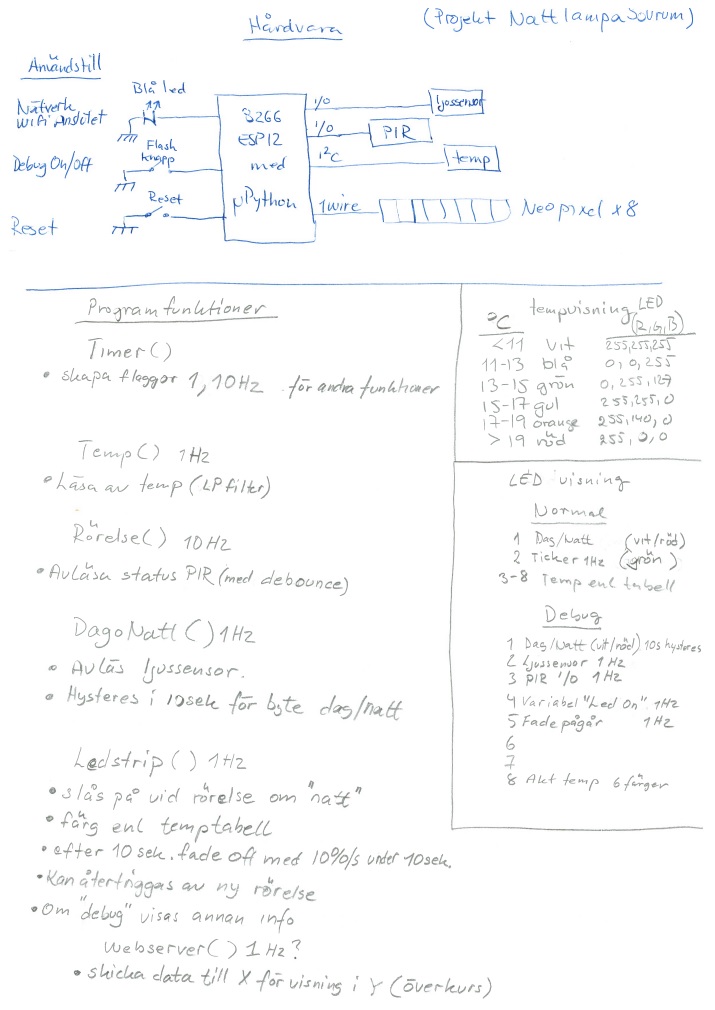 Hårdvara
(Projekt Nattlampa Sovrum)
Användstill
Nätverk
WiFi Anslutet
Blå led
Debug On/Off
Flash
knapp
Reset
Reset
8266
ESP12
med
µPython
I/O
ljussensor
I/O
PIR
I²C
temp
1wire
Neopixel x8
Programfunktioner
Timer()
• skapa flaggor 1, 10Hz för andra funktioner
Temp() 1Hz
• Läsa av temp (LP filter)
Rörelse() 10Hz
• Avläsa status PIR (med debounce)
DagoNatt() 1Hz
• Avläs ljussensor.
• Hysteres i 10sek för byte dag/natt
Ledstrip() 1Hz
• slås på vid rörelse om "natt"
• färg enl temptabell
• efter 10 sek. fade off med 10%/s under 10sek.
• Kan återtriggas av ny rörelse
• Om "debug" visas annan info
Webserver() 1Hz?
• skicka data till X för visning i Y (överkurs)
tempvisning LED
°C (R,G,B)
<11 vit 255,255,255
11-13 blå 0, 0, 255
13-15 grön 0, 255, 127
15-17 gul 255, 255, 0
17-19 orange 255, 140, 0
> 19 röd 255, 0, 0
LED visning
Normal
1 Dag/Natt (vit/röd)
2 Ticker 1Hz (grön)
3-8 Temp enl tabell
Debug
1 Dag/Natt (vit/röd) 10s hysteres
2 Ljussensor 1Hz
3 PIR I/O 1Hz
4 Variabel "Led On". 1Hz
5 Fade pågår 1Hz
6
7
8 Akt temp 6 färger